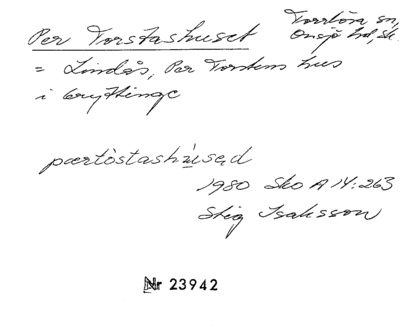 Per Torstashuset
Torrlösa sn,
Onsjö hd, Sk.
= Lindås, Per Torstens hus
i brytninge
pærtòstashùsəd
1980 Sko A 14:263
Stig Isaksson
Nr 23942